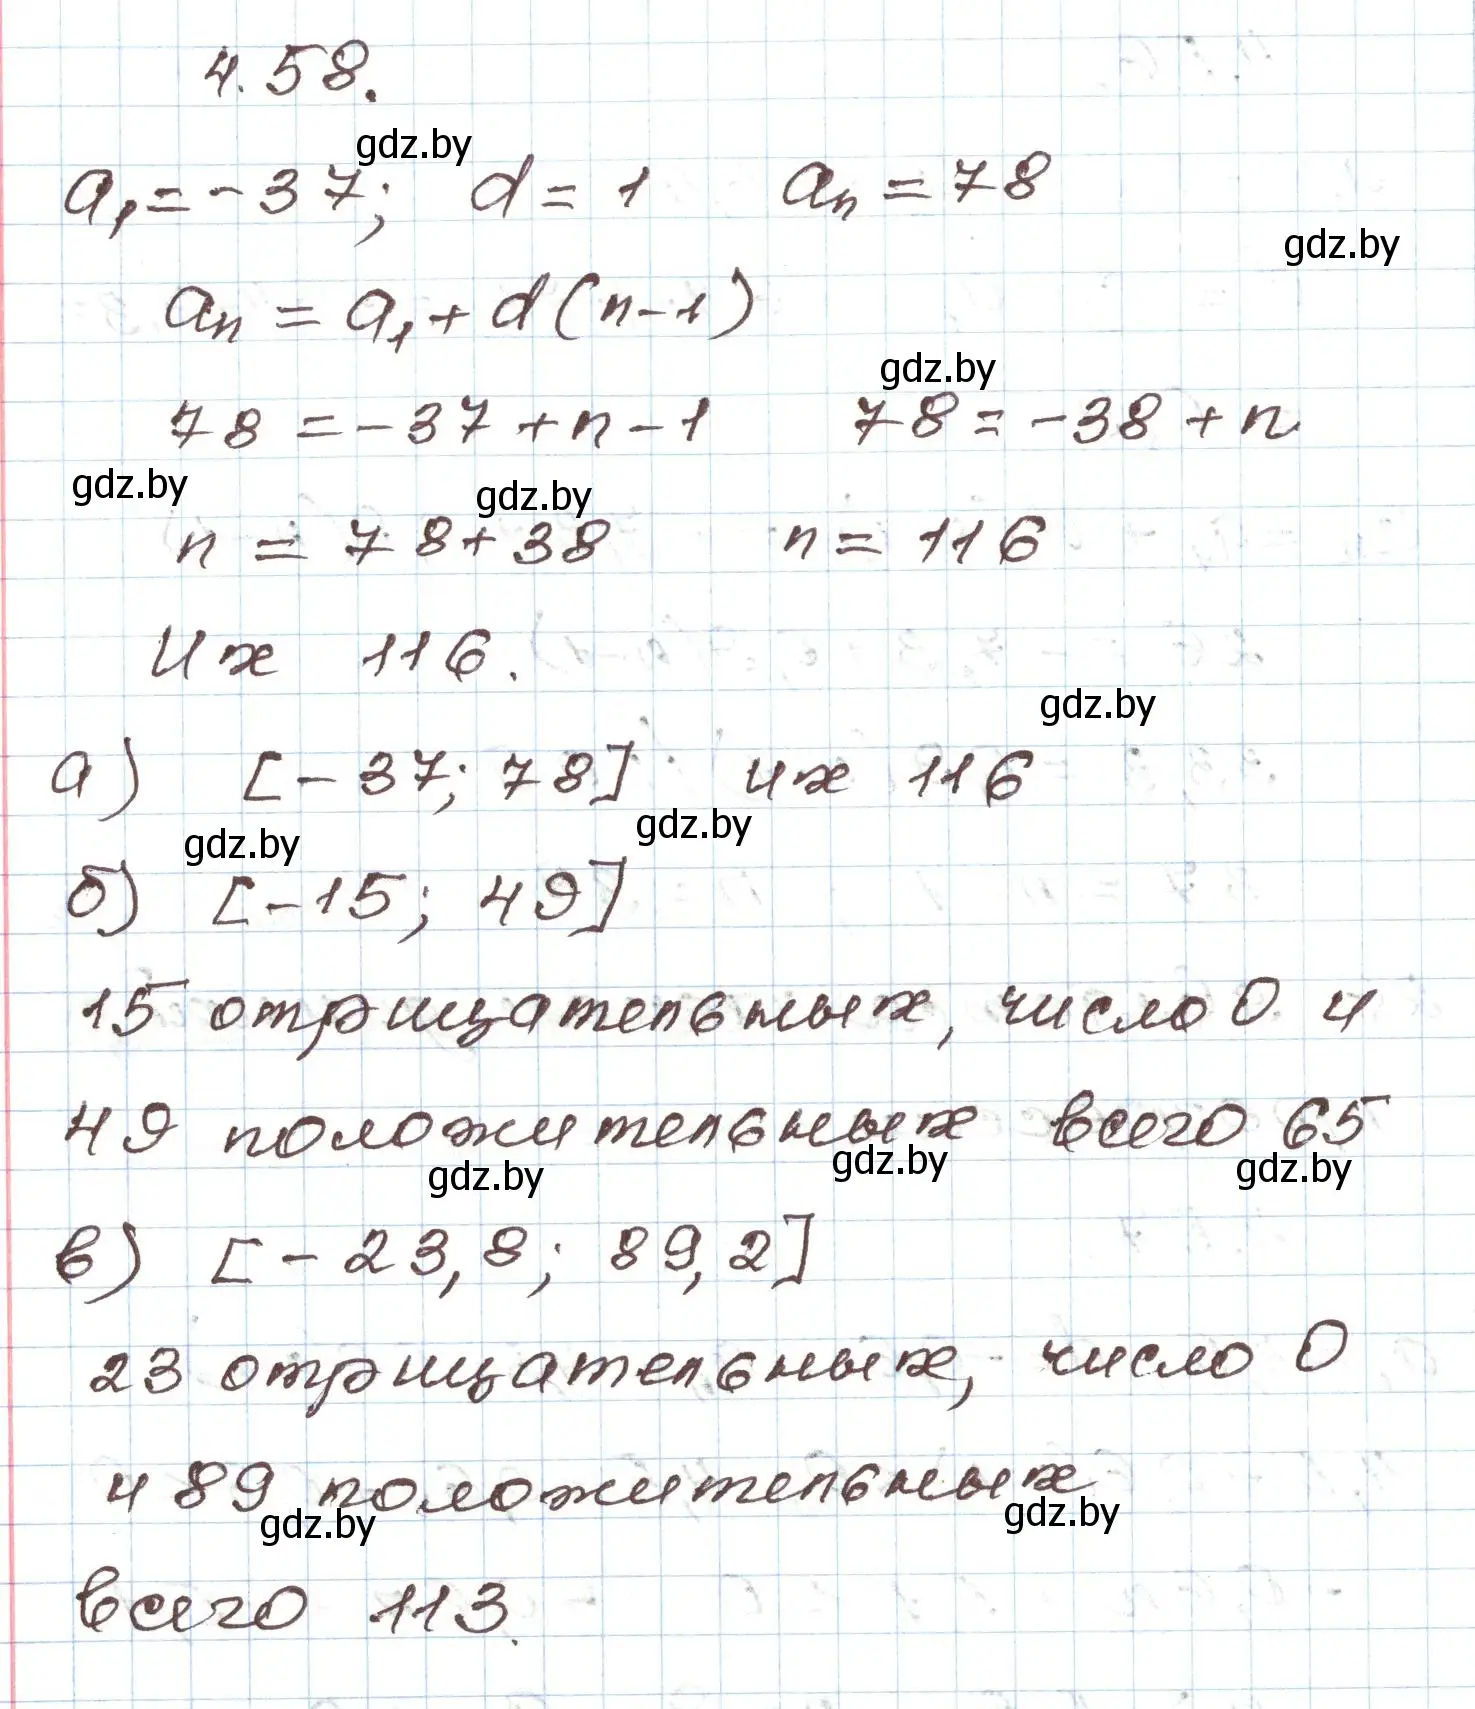 4.58.
gdz.by
a₁ = -37; d = 1 aₙ = 78
gdz.by
aₙ = a₁ + d(n-1)
gdz.by
78 = -37 + n - 1 78 = -38 + n
gdz.by gdz.by
n = 78 + 38 n = 116
Их 116.
gdz.by
а) [-37; 78] их 116
gdz.by gdz.by
б) [-15; 49]
15 отрицательных, число 0 и
49 положительных всего 65
gdz.by gdz.by gdz.by
в) [-23,8; 89,2]
23 отрицательных, число 0
и 89 положительных
gdz.by gdz.by
всего 113.